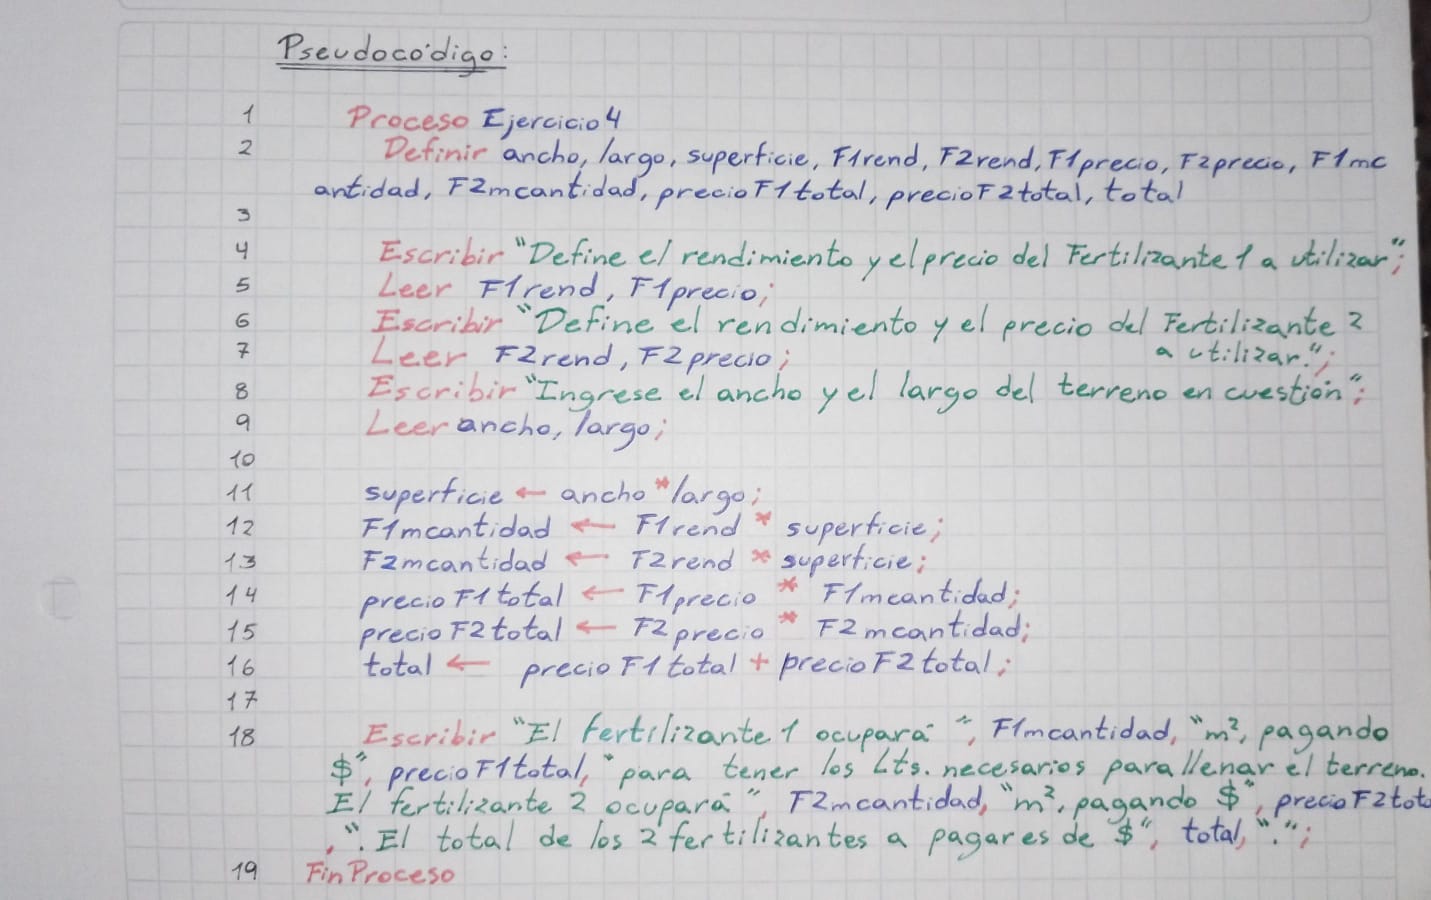 Pseudocódigo:
1 Proceso Ejercicio 4
2 Definir ancho, largo, superficie, F1rend, F2rend, F1precio, F2precio, F1mc
antidad, F2mcantidad, precioF1total, precioF2total, total
3
4 Escribir "Define el rendimiento y el precio del Fertilizante 1 a utilizar";
5 Leer F1rend, F1precio;
6 Escribir "Define el rendimiento y el precio del Fertilizante 2
a utilizar.";
7 Leer F2rend, F2precio;
8 Escribir "Ingrese el ancho y el largo del terreno en cuestión";
9 Leer ancho, largo;
10
11 superficie ← ancho * largo;
12 F1mcantidad ← F1rend * superficie;
13 F2mcantidad ← F2rend * superficie;
14 precioF1total ← F1precio * F1mcantidad;
15 precioF2total ← F2precio * F2mcantidad;
16 total ← precioF1total + precioF2total;
17
18 Escribir "El fertilizante 1 ocupará ", F1mcantidad, "m², pagando
$", precioF1total, "para tener los Lts. necesarios para llenar el terreno.
El fertilizante 2 ocupará ", F2mcantidad, "m², pagando $", precioF2tot
, ". El total de los 2 fertilizantes a pagar es de $", total, ".";
19 FinProceso